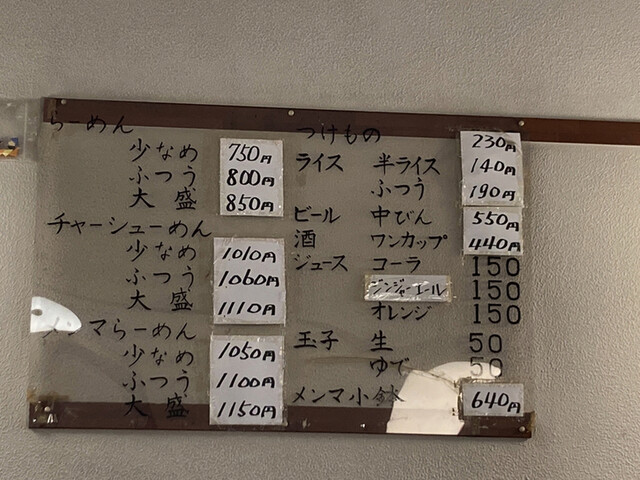 らーめん
少なめ 750円
ふつう 800円
大盛 850円
チャーシューめん
少なめ 1010円
ふつう 1060円
大盛 1110円
メンマらーめん
少なめ 1050円
ふつう 1100円
大盛 1150円
つけもの 230円
ライス 半ライス 140円
ふつう 190円
ビール 中びん 550円
酒 ワンカップ 440円
ジュース コーラ 150
ジンジャーエール 150
オレンジ 150
玉子 生 50
ゆで 50
メンマ小鉢 640円